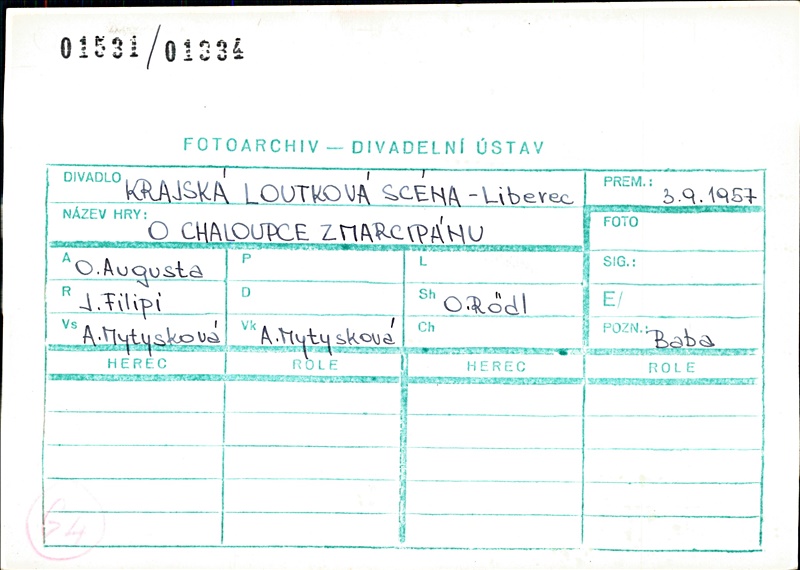 01531/01334
FOTOARCHIV — DIVADELNÍ ÚSTAV
DIVADLO KRAJSKÁ LOUTKOVÁ SCÉNA - Liberec PREM.: 3.9.1957
NÁZEV HRY: O CHALOUPCE Z MARCIPÁNU FOTO
A O. Augusta P L SIG.:
R J. Filipi D Sh O. Rödl E/
Vs A. Mytysková Vk A. Mytysková Ch POZN.: Baba
HEREC ROLE HEREC ROLE
54